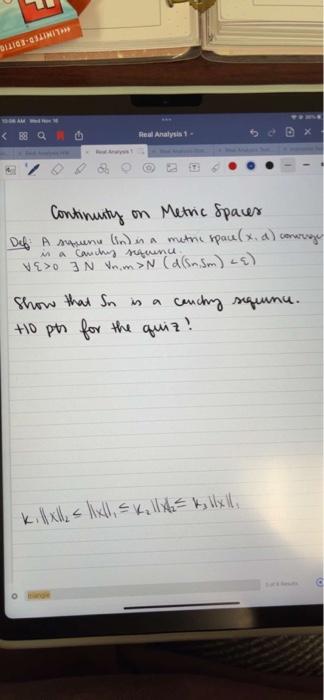 LIMITED-EDITIO
10:06 AM Wed Nov 16
Real Analysis 1
Real Analysis 1
Continuity on Metric Spaces
Def: A sequence (Sn) in a metric space (X, d) converge
is a Cauchy sequence
∀ε>0 ∃N ∀n,m>N (d(Sn,Sm) <ε)
Show that Sn is a cauchy sequence.
+10 pts for the quiz!
K₁||x||₂ ≤ ||x||₁ ≤ K₂||x||₂ ≤ K₃||x||₁
triangle